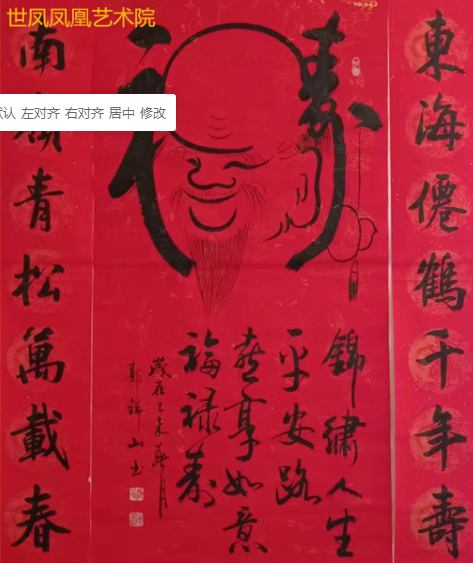 世凤凤凰艺术院
认 左对齐 右对齐 居中 修改
東海僊鶴千年壽
寿
錦繡人生
平安路
喜享如意
福禄寿
歲在乙未春月
郭 山书
南嶺青松萬載春